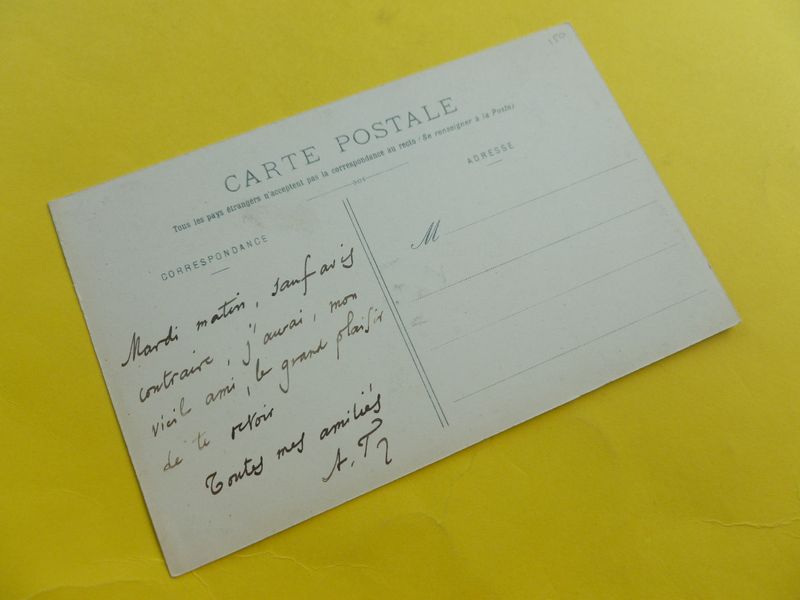 150
CARTE POSTALE
Tous les pays étrangers n'acceptent pas la correspondance au recto (Se renseigner à la Poste)
CORRESPONDANCE
ADRESSE
M
Mardi matin, sauf avis
contraire, j'aurai, mon
vieil ami, le grand plaisir
de te revoir
Toutes mes amitiés
A. T